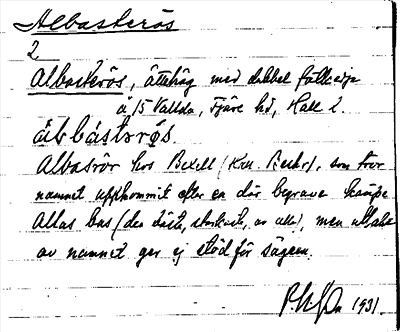 Albasterös
2
Albasterös, ättehög med dubbel fotkedja
å 15 Vallda, Fjäre hd, Hall l.
àbbástərø̀s.
Albasrör hos Bexell (Hall. Beskr.), som tror
namnet uppkommit efter en där begraven kämpe
Allas bas (den störste, starkaste, av alla), men uttalet
av namnet ger ej stöd för sägnen.
1931.